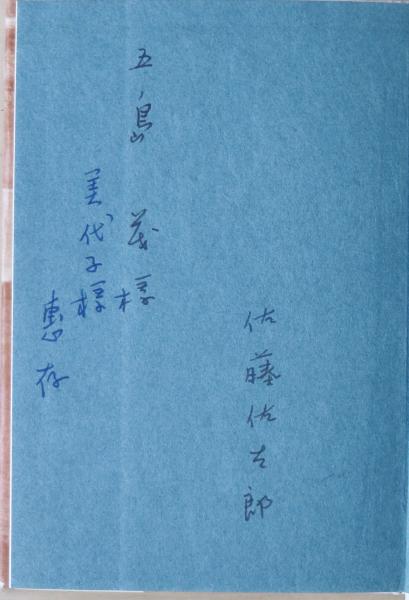 佐藤佐太郎
五島 茂様
美代子様
惠存